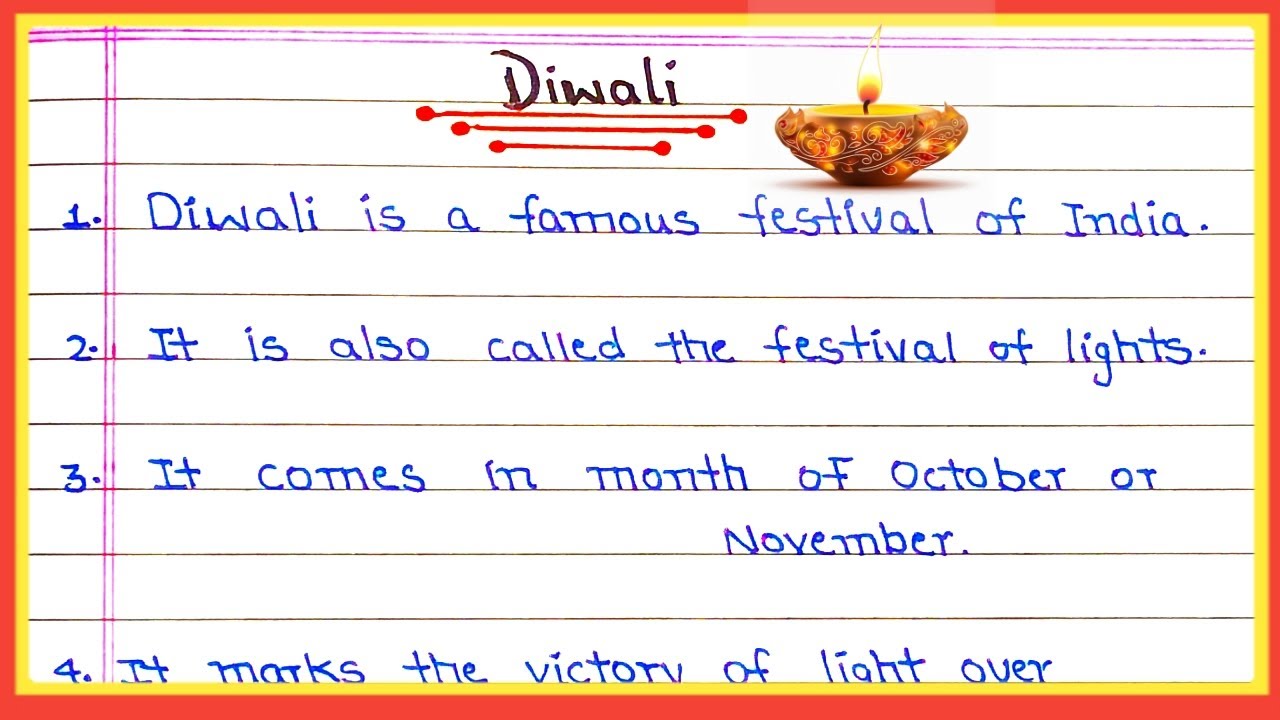 Diwali
1. Diwali is a famous festival of India.
2. It is also called the festival of lights.
3. It comes in month of October or
November.
4. It marks the victory of light over